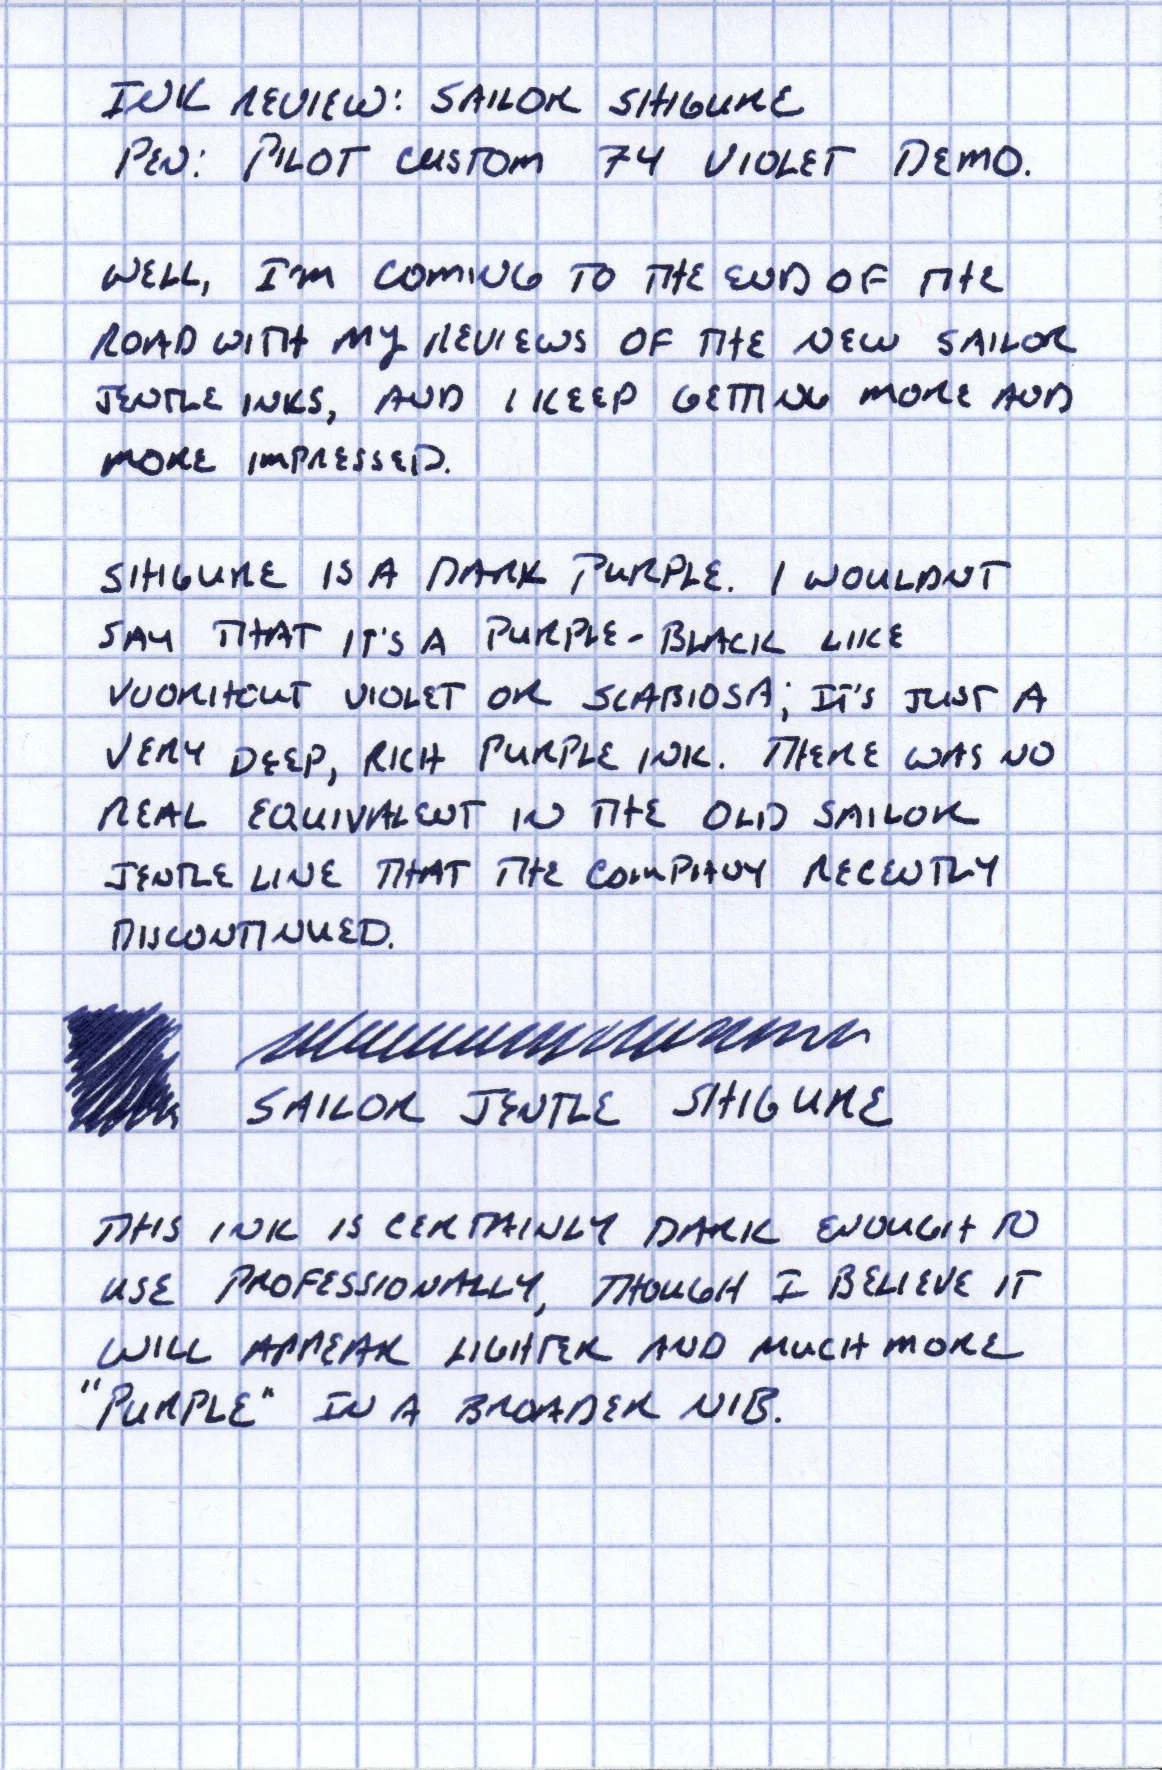 INK REVIEW: SAILOR SHIGURE
PEN: PILOT CUSTOM 74 VIOLET DEMO.
WELL, I'M COMING TO THE END OF THE
ROAD WITH MY REVIEWS OF THE NEW SAILOR
JENTLE INKS, AND I KEEP GETTING MORE AND
MORE IMPRESSED.
SHIGURE IS A DARK PURPLE. I WOULDN'T
SAY THAT IT'S A PURPLE-BLACK LIKE
VUORIHOUT VIOLET OR SCABIOSA; IT'S JUST A
VERY DEEP, RICH PURPLE INK. THERE WAS NO
REAL EQUIVALENT IN THE OLD SAILOR
JENTLE LINE THAT THE COMPANY RECENTLY
DISCONTINUED.
SAILOR JENTLE SHIGURE
THIS INK IS CERTAINLY DARK ENOUGH TO
USE PROFESSIONALLY, THOUGH I BELIEVE IT
WILL APPEAR LIGHTER AND MUCH MORE
"PURPLE" IN A BROADER NIB.